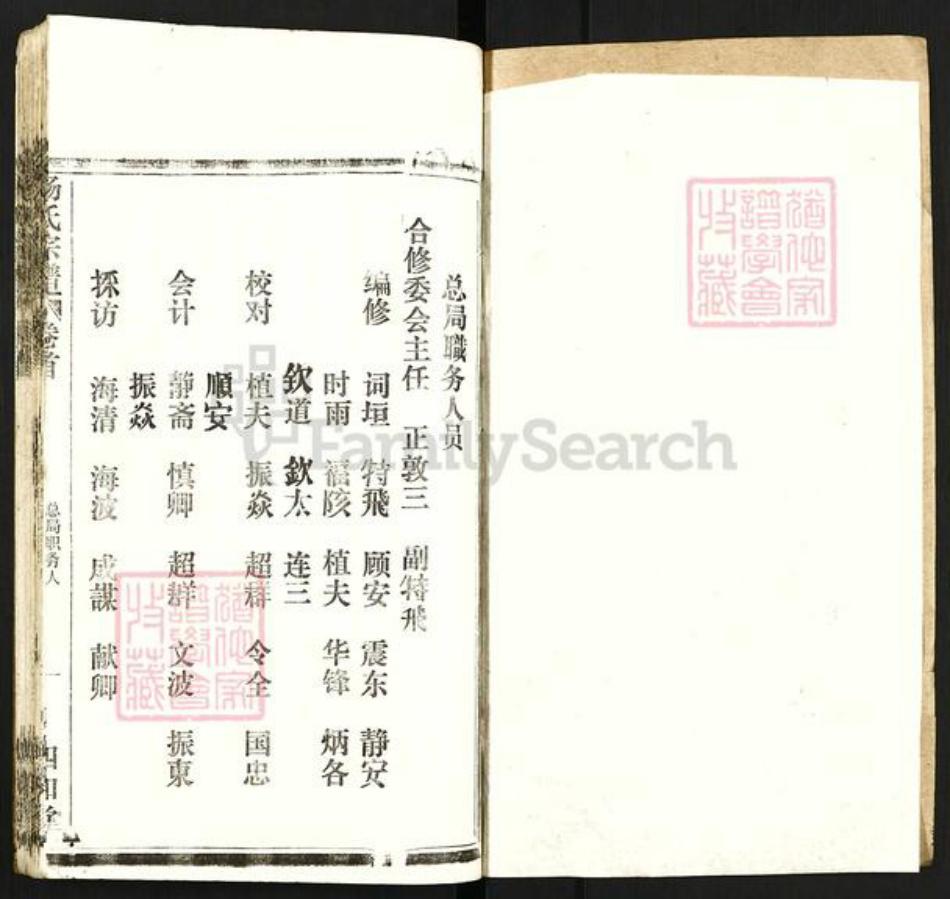 总局職务人员
合修委会主任 正敦三 副特飛
编修 词垣 特飛 顾安 震东 静安
时雨 福陔 植夫 华锋 炳各
欽道 欽太 连三
校对 植夫 振焱 超群 令全 国忠
順安
会计 静斋 慎卿 超群 文波 振東
振焱
採访 海清 海波 成謀 献卿
杨氏宗譜 卷首 总局职务人 一
FamilySearch